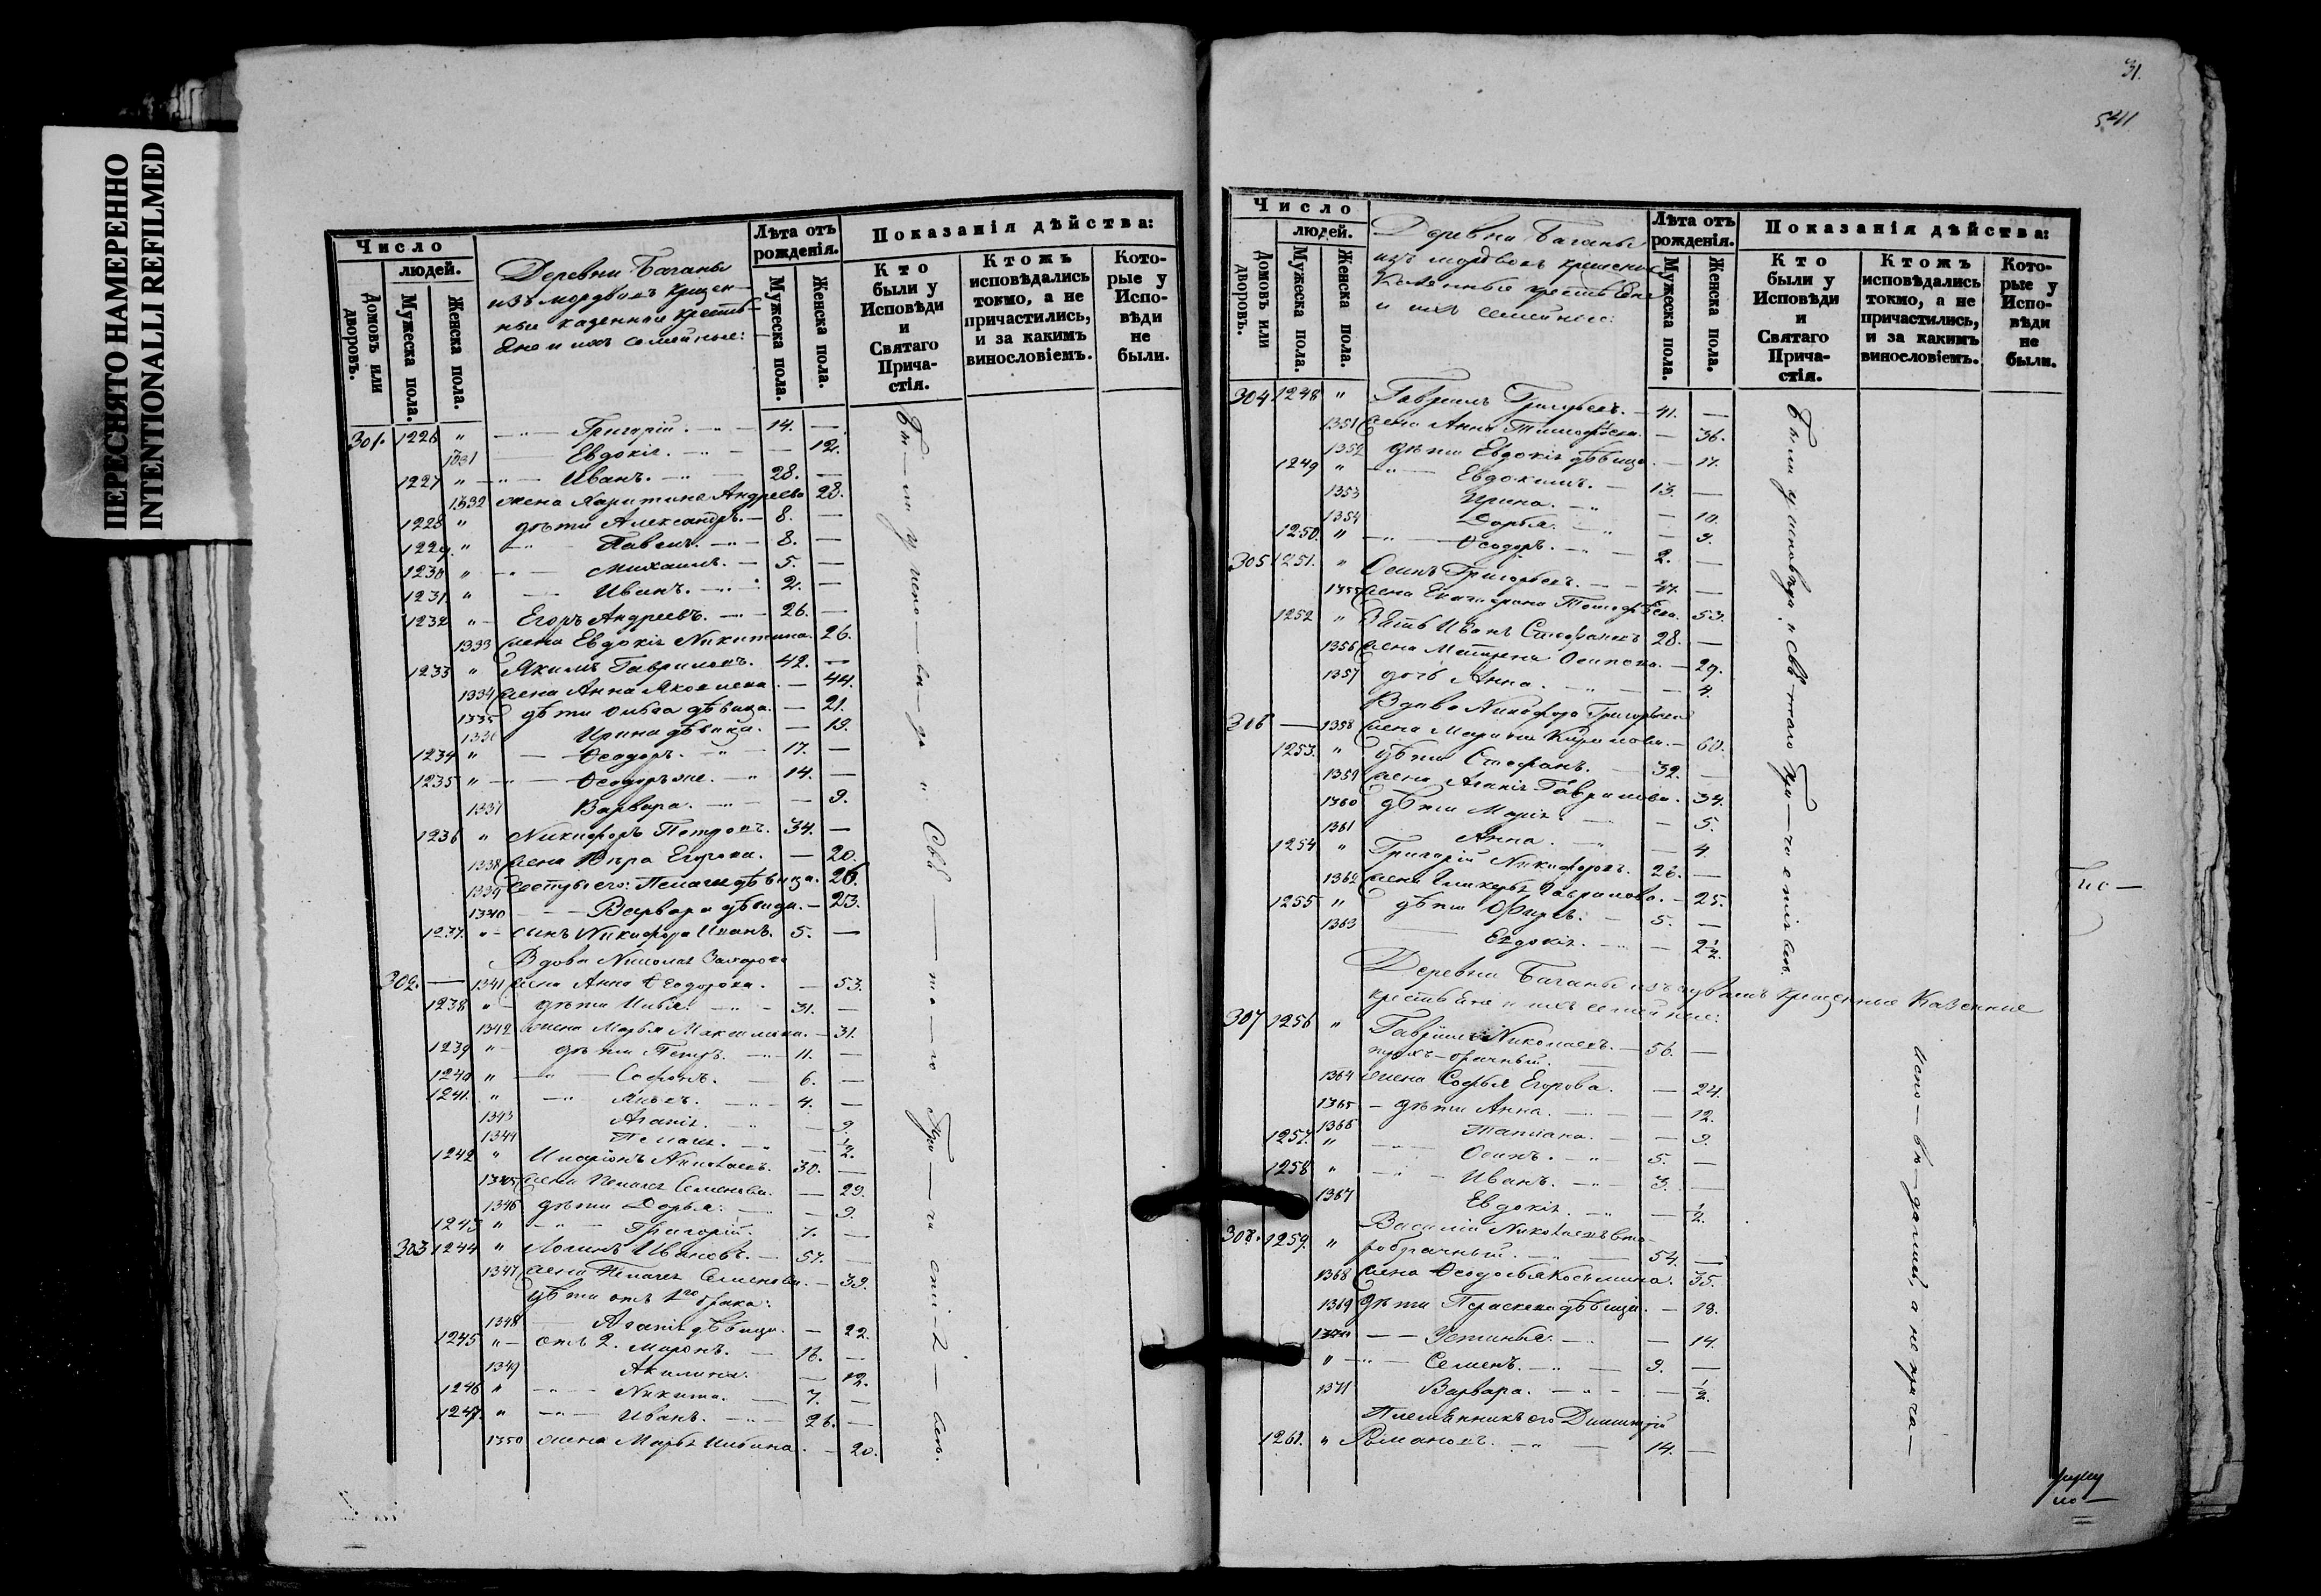 ПЕРЕСНЯТО НАМЕРЕННО
INTENTIONALLI REFILMED
Число
людей.
Домовъ или дворовъ.
Мужеска пола.
Женска пола.
Деревни Баганы
изъ мордвы крещен-
ные казенные кресть-
яне и ихъ семейные:
Лѣта отъ рожденія.
Мужеска пола.
Женска пола.
Показанія дѣйства:
Кто были у Исповѣди и Святаго Прича-стія.
Ктожъ исповѣдались токмо, а не причастились, и за какимъ винословіемъ.
Кото-рые у Испо-вѣди не были.
301. 1226 " — Григорій. — 14. —
1331 Евдокія. — — 12.
1227 " — Иванъ. — 28. —
1332 жена Харитина Андреева 28.
1228 " дѣти Александръ. — 8. —
1229. " — Павелъ. — 8. —
1230 " — Михаилъ. — 5. —
1231. " — Иванъ. — 2. —
1232 " — Егоръ Андреевъ. — 26. —
1333 жена Евдокія Никитина. 26.
1233 " Якимъ Гавриловъ. 42. —
1334 жена Анна Яковлева. — 44.
1335 дѣти Ольга дѣвица. — 21.
1336 Ирина дѣвица. — 19.
1234 " — Ѳеодоръ. — 17. —
1235 " — Ѳеодоръ же. — 14. —
1337 Варвара. — — 9.
1236 " Никифоръ Петровъ. 34. —
1338 жена Вѣра Егорова. — 20.
1339 сестры его: Пелагея дѣвица. 26.
1340 — Варвара дѣвица. — 23.
1237. " — сынъ Никифора Иванъ. 5. —
Вдова Николая Захарова
302. — 1341 жена Анна Ѳеодорова. — 53.
1238 " — дѣти Илья. — 31. —
1342 жена Марья Максимова. — 31.
1239 " — дѣти Петръ. — 11. —
1240 " — Софонъ. — 6. —
1241. " — 4. —
1343 Агапія. — — 9.
1344 Пелагея. — — ½.
1242 " Иларіонъ Николаевъ. 30. —
1345 жена Пелагея Семенова. — 29.
1346 дѣти Дарья. — — 9.
1243 " — Григорій. 7. —
303 1244 " Логинъ Ивановъ. — 57. —
1347 жена Пелагея Семенова. — 39.
дѣти отъ 1го брака:
1348 — Агапія дѣвица. — 22.
1245 " — отъ 2. Миронъ. — 16. —
1349 Акилина. — 12.
1246 " — Никита. — 7. —
1247. " — Иванъ. — 26. —
1350 жена Марья Ильина. — 20.
Бы — ли у испо — вѣ — ди и Свя — та — го При — ча — сті — я — всѣ.
31.
541
Число
людей.
Домовъ или дворовъ.
Мужеска пола.
Женска пола.
Деревни Баганы
изъ мордвовъ крещеные
Казенные крестьяне
и ихъ семейные:
Лѣта отъ рожденія.
Мужеска пола.
Женска пола.
Показанія дѣйства:
Кто были у Исповѣди и Святаго Прича-стія.
Ктожъ исповѣдались токмо, а не причастились, и за какимъ винословіемъ.
Кото-рые у Испо-вѣди не были.
304 1248 " Гаврилъ Григорьевъ. — 41. —
1351 жена Анна Тимофѣева. — 36.
1352 дѣти Евдокія дѣвица. — 17.
1249 " — Евдокимъ. — 13. —
1353 Ирина. — — 10.
1354 Дарья. — — 9.
1250. " — Ѳеодоръ. — 2. —
305 1251. " Осипъ Григорьевъ. — 47. —
1355 жена Екатерина Тимофѣева. 53.
1252 " Зять Иванъ Стефановъ 28. —
1356 жена Матрена Осипова. — 29.
1357 дочь Анна. — — 4.
Вдова Никифора Григорьева
306 — 1358 жена Марина Кирилова. — 60.
1253. " дѣти Стефанъ. — 32. —
1359 жена Агапія Гаврилова. 34.
1360 дѣти Марія. — — 5.
1361 Анна. — — 4.
1254 " Григорій Никифоровъ. 26. —
1362 жена Гликерья Гаврилова. — 25.
1255 " дѣти — 5. —
1363 Евдокія. — — 2½.
Были у исповѣди и свя-таго При — частія всѣ.
Деревни Баганы изъ крещенные Казенные
крестьяне и ихъ семейные:
307 1256 " Гаврилъ Николаевъ. — 56. —
трех-брачный.
1364 жена Софья Егорова. — 24.
1365 — дѣти Анна. — — 12.
1366 Татіана. — — 9.
1257. " — Осипъ. — 5. —
1258 " — Иванъ. — 3. —
1367 Евдокія. — — ½.
Василій Николаевъ вто-
308. 1259. " робрачный. — 54. —
1368 жена Ѳеодосья Косьмина. 35.
1369 дѣти Параскева дѣвица. — 18.
1370 — Устинья. — — 14.
" — Семенъ. — 9. —
1371 Варвара. — — ½.
Племянникъ его Димитрій
1261. " Романовъ. — 14. —
Испо — вѣ — дались, а не прича —